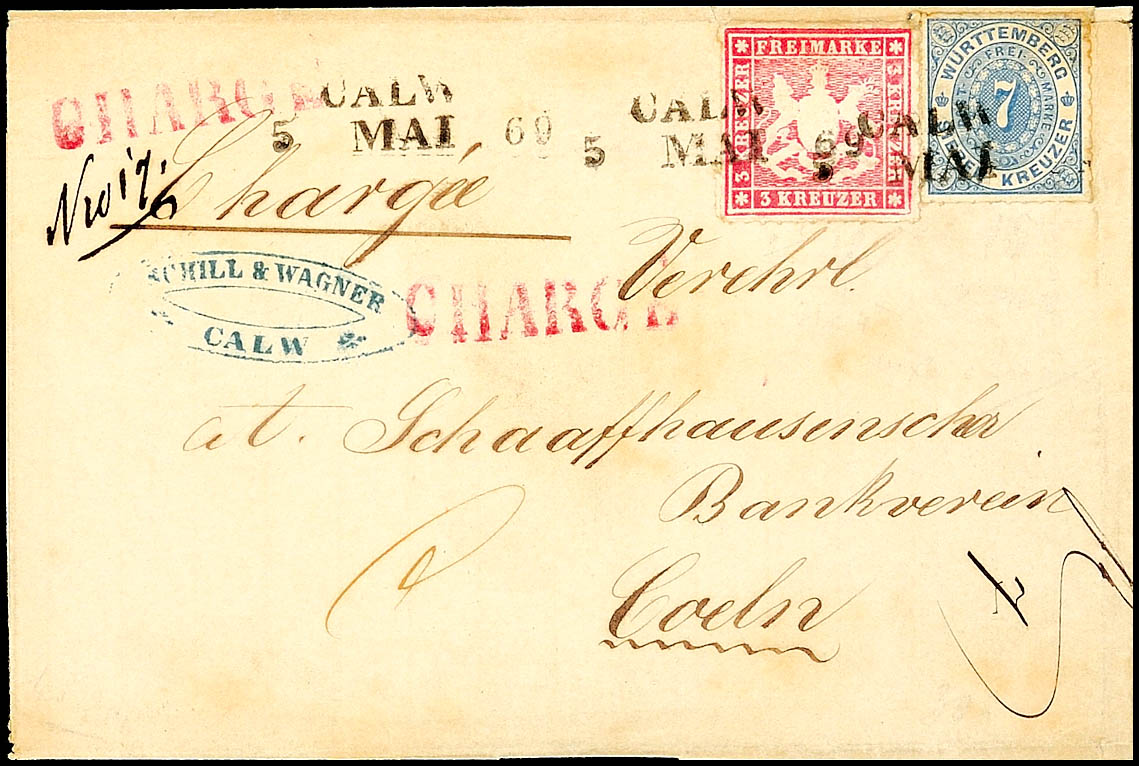 CHARGÉ
CALW
5 MAI 69
CALW
5 MAI 69
CALW
5 MAI
FREIMARKE
3 KREUZER
3 KREUZER
3 KREUZER
WÜRTTEMBERG
FREI-MARKE
7
KREUZER
Chargée
Verehrl.
SCHILL & WAGNER
CALW
CHARGÉ
A. Schaaffhausenscher
Bankverein
Coeln